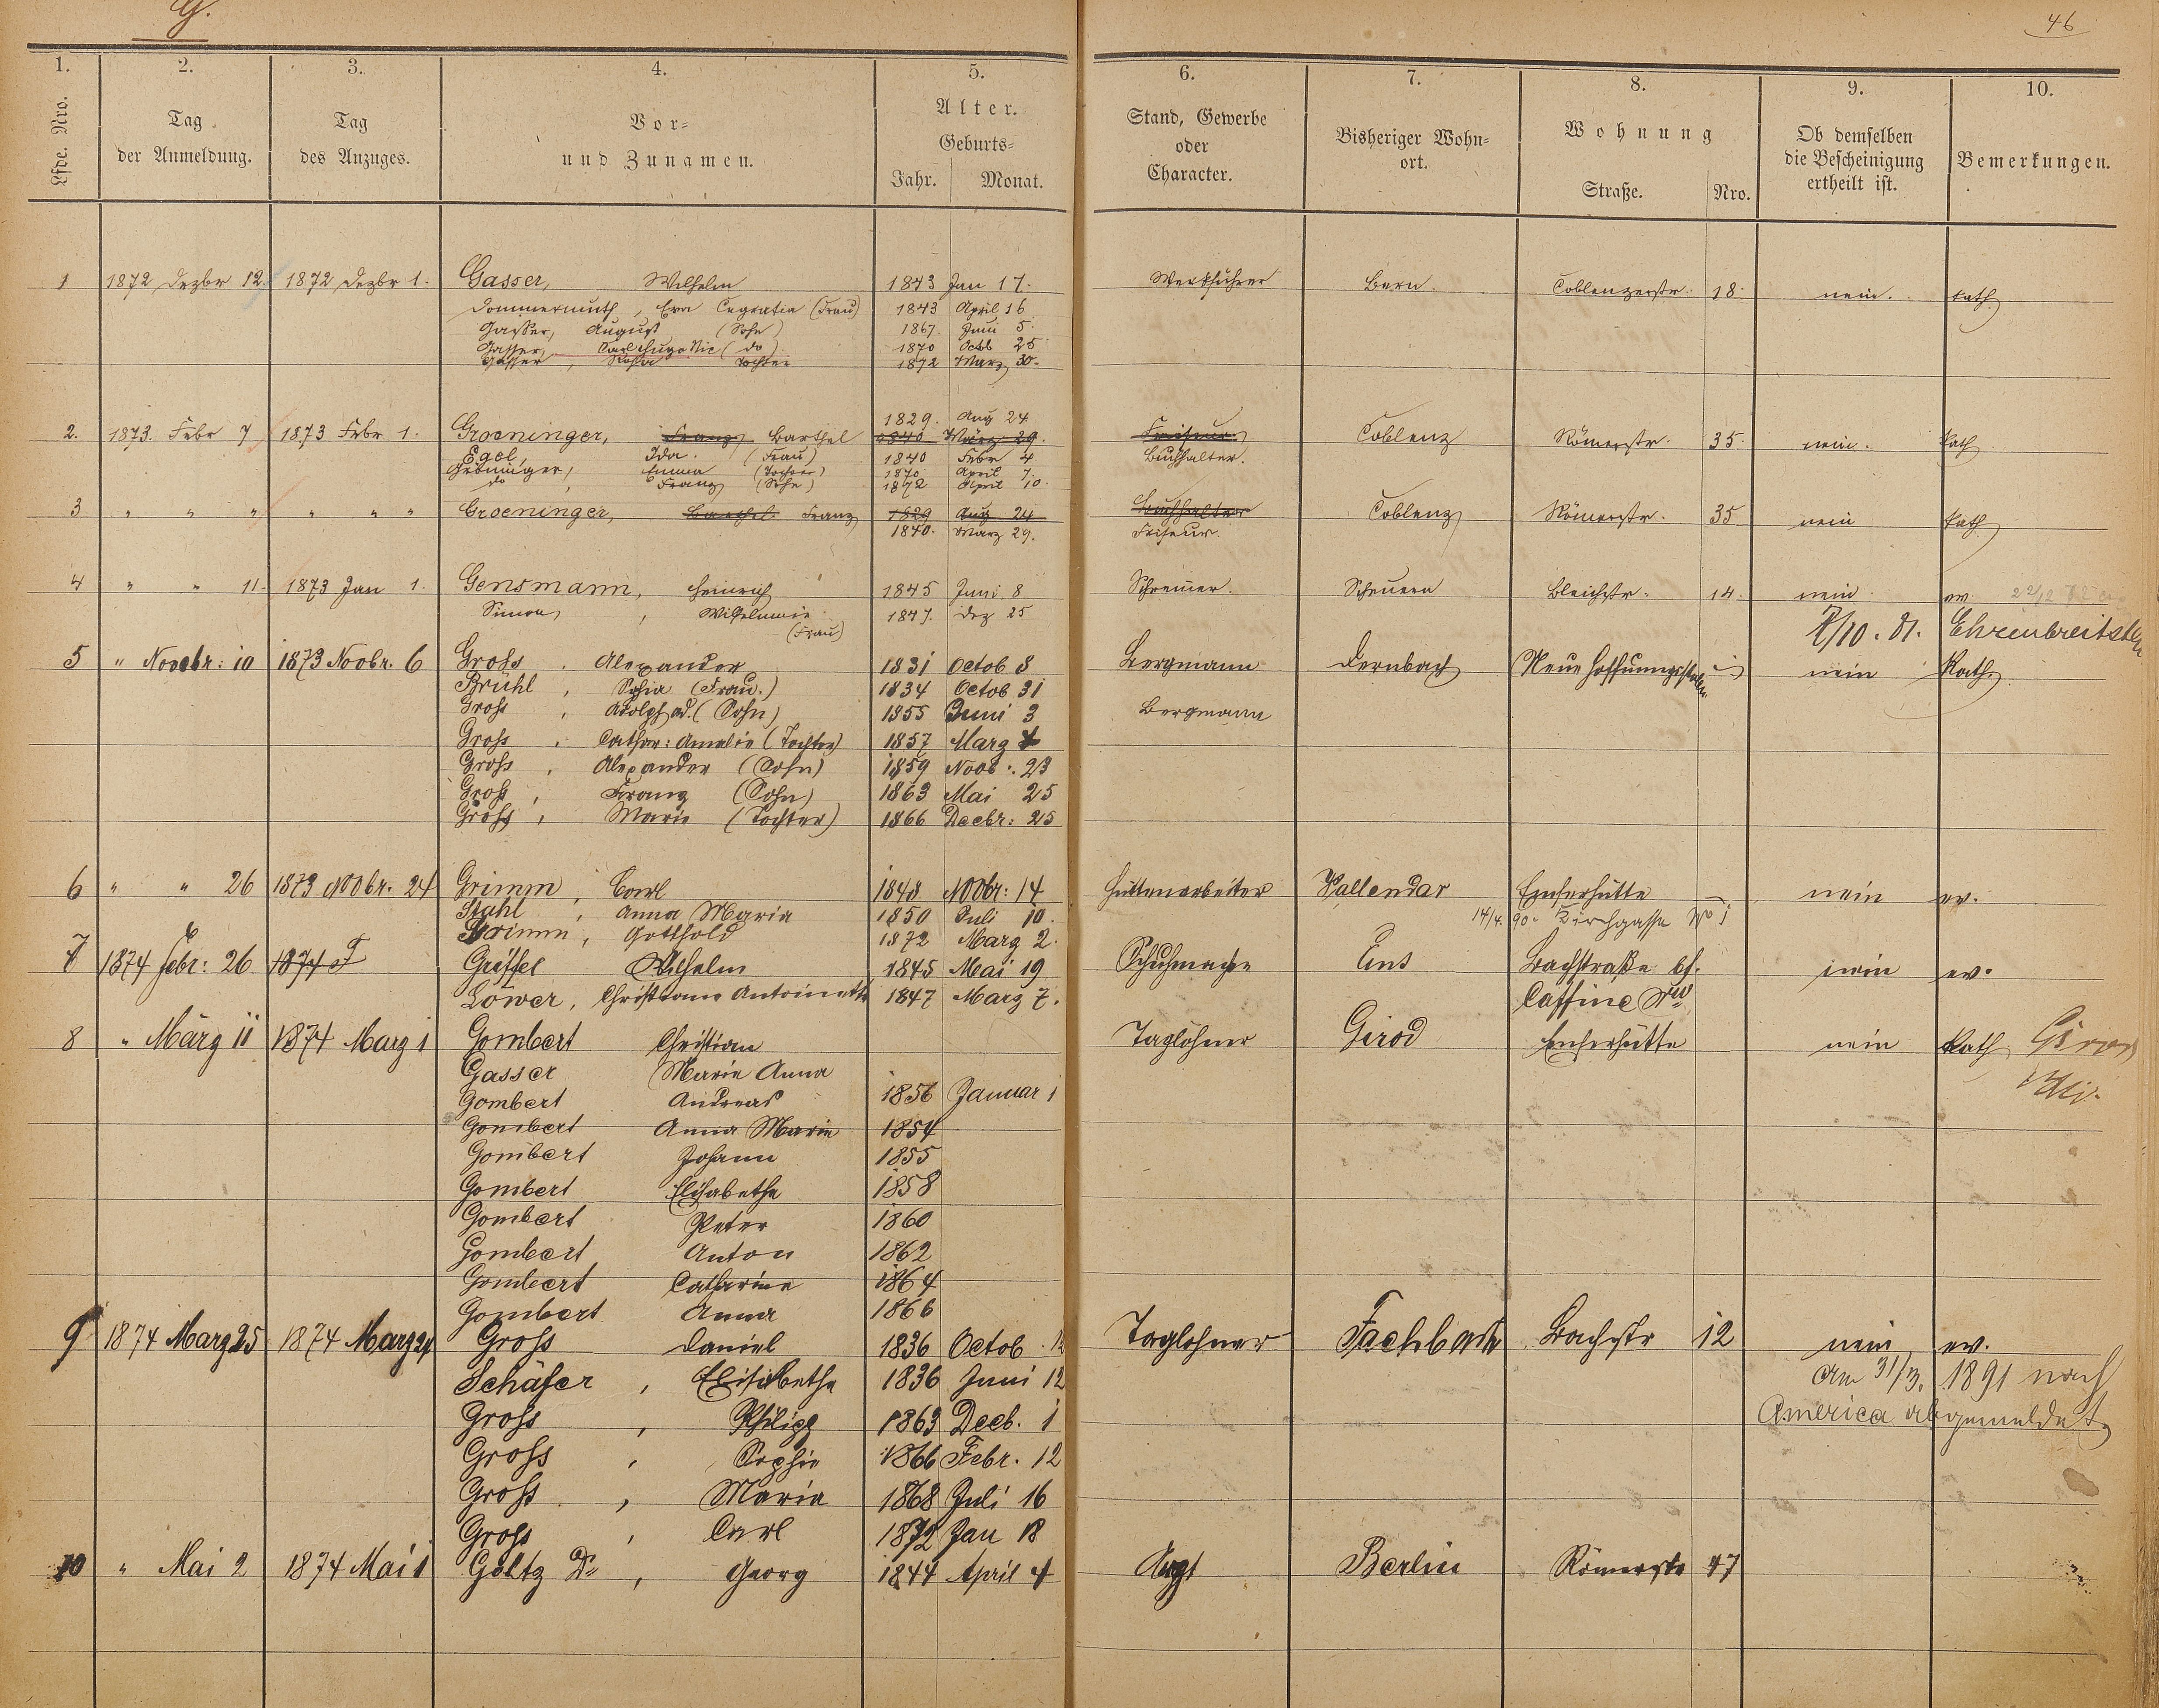 G.
46
1. 2. 3. 4. 5. 6. 7. 8. 9. 10.
Lfde. Nro.
Tag der Anmeldung.
Tag des Anzuges.
Vor= und Zunamen.
Alter.
Geburts=
Jahr. Monat.
Stand, Gewerbe oder Character.
Bisheriger Wohn=ort.
Wohnung
Straße. Nro.
Ob demselben die Bescheinigung ertheilt ist.
Bemerkungen.
1 1872 Dezbr 12. 1872 Dezbr 1. Gasser, Wilhelm 1843 Jan 17. Werkführer Bern. Coblenzerstr. 18. nein. kath
Dommermuth, Eva (Frau) 1843 April 16
Gasser, August (Sohn) 1867 Juni 5.
Gasser, Carl Hugo Vic (do) 1870 Octb 25
Gasser, Rosa Tochter 1872 März 30.
1829. Aug 24
2. 1873. Febr 7 1873 Febr 1. Groeninger, Franz Barthel 1840 März 29. Friseur Coblenz Römerstr. 35. nein. kath
Egel, Ida. (Frau) 1840 Febr 4 Buchhalter.
Gröninger, Emma (Tochter) 1870 April 7.
do, Franz (Sohn) 1872 April 10.
3 " " " " " " Groeninger, Barthel. Franz 1829 Aug 24 Buchhalter Coblenz Römerstr. 35 nein kath
1840. März 29. Friseur.
4 " " 11. 1873 Jan 1. Gensmann, Heinrich 1845 Juni 8 Schreiner. Scheuern Bleichstr. 14. nein. ev.
Simon, Wilhelmine 1847. Dez 25
(Frau) /10. 81. Ehrenbreitstein
5 " Novebr: 10 1873 Novbr. 6 Groß, Alexander 1831 Octob 8 Bergmann Dernbach Neue Hoffnungsstollen nein Kath.
Brühl, Sofia (Frau.) 1834 Octob 31
Groß, Adolph ad. (Sohn) 1855 Juni 3 Bergmann
Groß, Cathar: Amalie (Tochter) 1857 Marz
Groß, Alexander (Sohn) 1859 Novb: 23
Groß, Franz (Sohn) 1863 Mai 25
Groß, Marie (Tochter) 1866 Decbr: 25
6 " " 26 1873 Novbr. 24 Grimm, Carl 1848 Novbr: 14 Hüttenarbeiter Vallendar Emserhütte nein ev.
Stahl, Anna Maria 1850 Juli 10. 14/4. 90. Kirchgasse No 1
Grimm, Gotthold 1872 Marz 2.
7 1874 Febr: 26 1874 F Griffel Wilhelm 1845 Mai 19 Schuhmacher Ems Bachstraße bf. nein ev.
Löwer, Christiane Antoinette 1847 Marz 7. Caffine
8 " März 11 1874 Marz 1 Gombert Christian Taglöhner Girod Emserhütte nein Kath
Gasser Marie Anna
Gombert Andreas 1856 Januar 1
Gombert Anna Marie 1854
Gombert Johann 1855
Gombert Elisabetha 1858
Gombert Peter 1860
Gombert Anton 1862
Gombert Catharine 1864
Gombert Anna 1866
9 1874 Marz 25 1874 Marz 24 Groß Daniel 1836 Octob. 12 Taglohner Fachbach Bachstr 12 nein ev.
Schäfer, Elisabetha 1836 Juni 12 Am 31/3. 1891 nach
Groß, Philipp 1863 Decb. 1 America abgemeldet
Groß, Sophie 1866 Febr. 12
Groß, Maria 1868 Juli 16
Groß, Carl 1872 Jan 18
10 " Mai 2 1874 Mai 1 Goltz Dr, Georg 1844 April 4 Arzt Berlin Römerstr 47